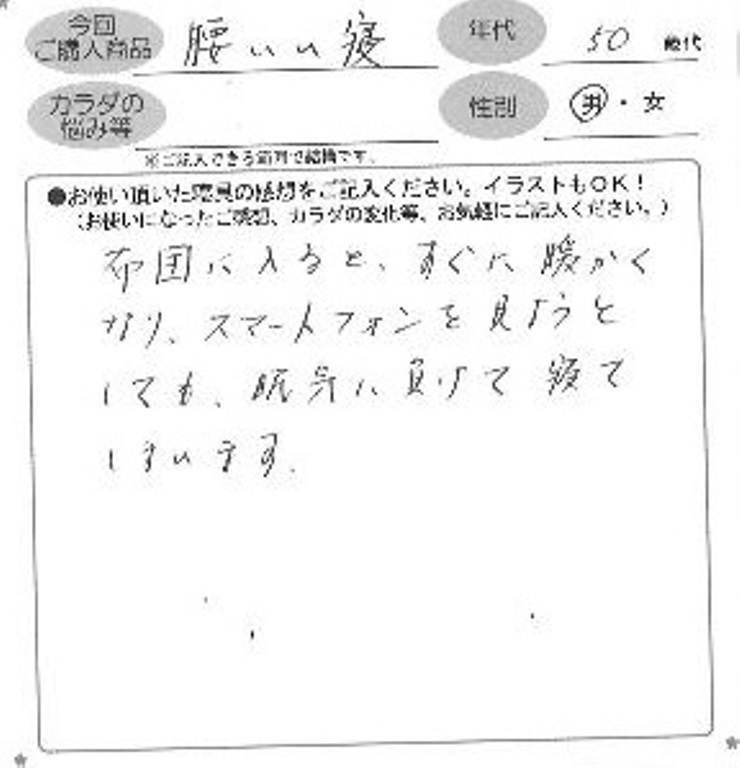 今回
ご購入商品
腰いい寝
年代
50 歳代
カラダの
悩み等
性別
男・女
※ご記入できる範囲で結構です。
●お使い頂いた寝具の感想をご記入ください。イラストもOK！
（お使いになったご感想、カラダの変化等、お気軽にご記入ください。）
布団に入ると、すぐに暖かく
なり、スマートフォンを見ようと
しても、眠気に負けて寝て
しまいます。